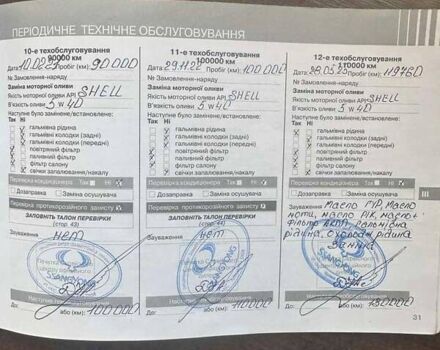 ПЕРІОДИЧНЕ ТЕХНІЧНЕ ОБСЛУГОВУВАННЯ
10-е техобслуговування
90000 км
Дата: Пробіг (км): 90000
№ Замовлення-наряду
Заміна моторної оливи
Якість моторної оливи API SHELL
В'язкість оливи 5W40
Наступне було замінене/встановлене:
Так Ні
гальмівна рідина
гальмівні колодки (задні)
гальмівні колодки (передні)
повітряний фільтр
паливний фільтр
фільтр салону
свічки запалювання/накалу
Перевірка кондиціонера Так Ні
Дозаправка Заміна осушувача
Перевірка протикорозійного захисту
ЗАПОВНІТЬ ТАЛОН ПЕРЕВІРКИ
(стор. 43)
Зауваження
нет
SSANGYONG
Наступне техобслуговування
До: або (км): 100000
11-е техобслуговування
100000 км
Дата: 29.11.22 Пробіг (км): 100000
№ Замовлення-наряду
Заміна моторної оливи
Якість моторної оливи API SHELL
В'язкість оливи 5W40
Наступне було замінене/встановлене:
Так Ні
гальмівна рідина
гальмівні колодки (задні)
гальмівні колодки (передні)
повітряний фільтр
паливний фільтр
фільтр салону
свічки запалювання/накалу
Перевірка кондиціонера Так Ні
Дозаправка Заміна осушувача
Перевірка протикорозійного захисту
ЗАПОВНІТЬ ТАЛОН ПЕРЕВІРКИ
(стор. 44)
Зауваження
нет
SSANGYONG
Наступне техобслуговування
До: або (км): 110000
12-е техобслуговування
110000 км
Дата: 28.05.25 Пробіг (км):
№ Замовлення-наряду
Заміна моторної оливи
Якість моторної оливи API SHELL
В'язкість оливи 5W40
Наступне було замінене/встановлене:
Так Ні
гальмівна рідина
гальмівні колодки (задні)
гальмівні колодки (передні)
повітряний фільтр
паливний фільтр
фільтр салону
свічки запалювання/накалу
Перевірка кондиціонера Так Ні
Дозаправка Заміна осушувача
Зауваження Масло ГУР, масло
масло РК, масло+
фільтр АКПП, гальмівна
рідина, охолодж рідина
заміна
SSANGYONG
Наступне техобслуговування
До: або (км):
III
31